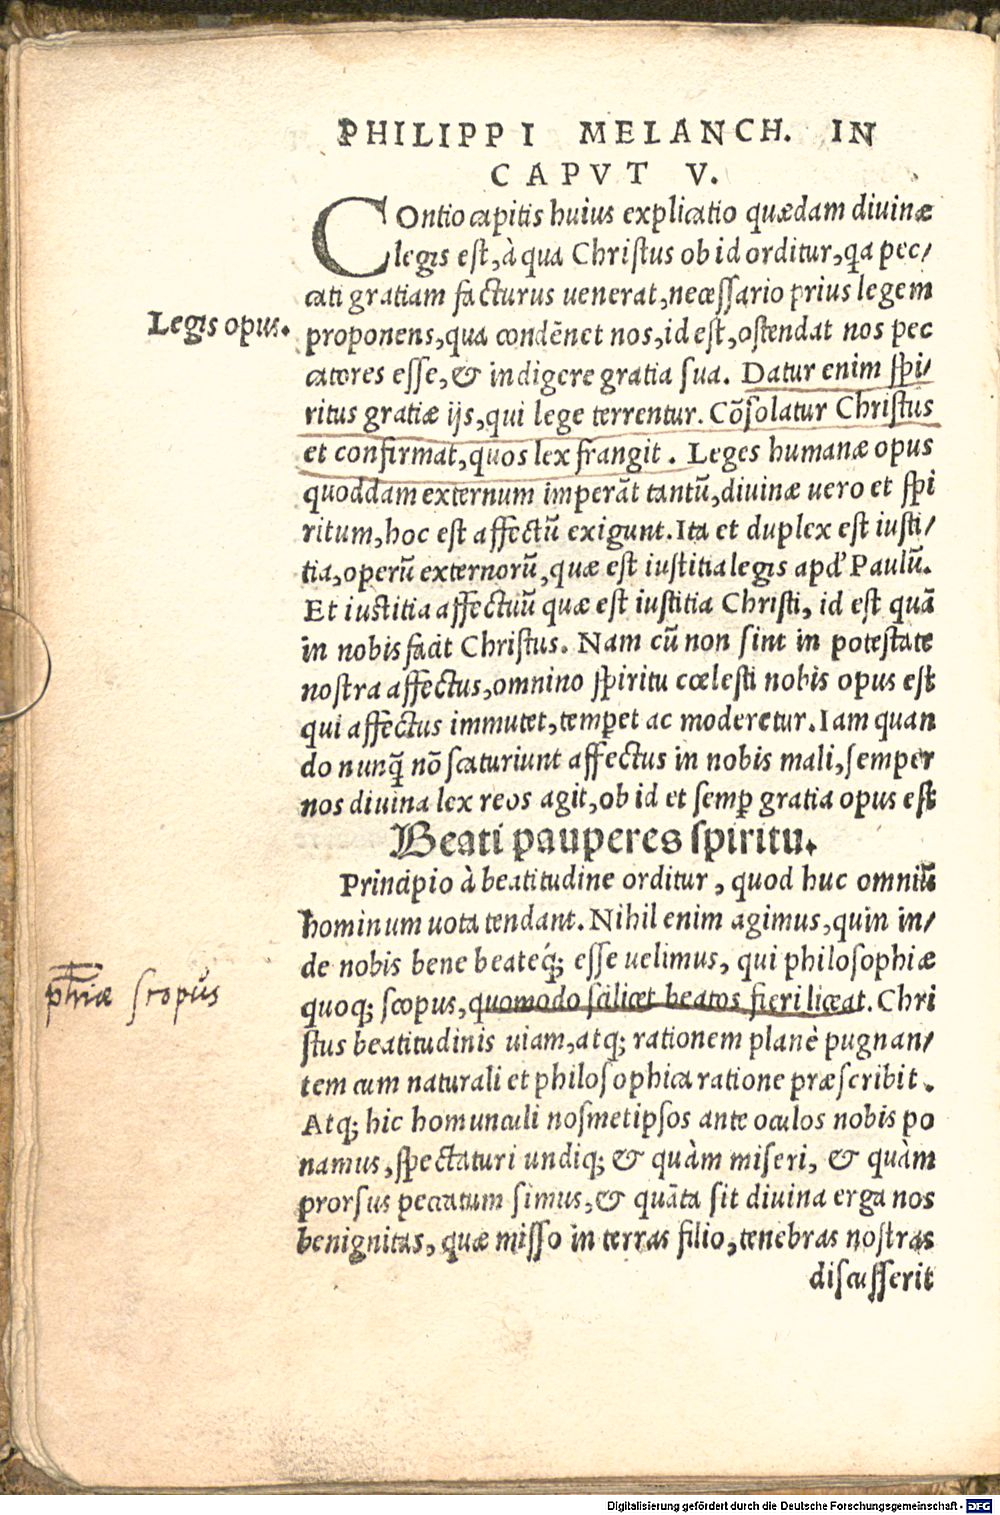 PHILIPPI MELANCH. IN
CAPVT V.
COntio capitis huius explicatio quædam diuinæ
legis est, à qua Christus ob id orditur, qa pec/
cati gratiam facturus uenerat, necessario prius legem
Legis opus.
proponens, qua condẽnet nos, id est, ostendat nos pec
catores esse, & indigere gratia sua. Datur enim spi/
ritus gratiæ ijs, qui lege terrentur. Cõsolatur Christus
et confirmat, quos lex frangit. Leges humanæ opus
quoddam externum imperãt tantũ, diuinæ uero et spi
ritum, hoc est affectũ exigunt. Ita et duplex est iusti/
tia, operũ externorũ, quæ est iustitia legis apd' Paulũ.
Et iustitia affectuũ quæ est iustitia Christi, id est quã
in nobis facit Christus. Nam cũ non sint in potestate
nostra affectus, omnino spiritu cœlesti nobis opus est
qui affectus immutet, temperet ac moderetur. Iam quan
do nunq̃ nõ scaturiunt affectus in nobis mali, semper
nos diuina lex reos agit, ob id et semp gratia opus est
Beati pauperes spiritu.
Principio à beatitudine orditur, quod huc omniũ
hominum uota tendant. Nihil enim agimus, quin in/
de nobis bene beateq́; esse uelimus, qui philosophiæ
phiæ scopus
quoq; scopus, quomodo scilicet beatos fieri liceat. Chri
stus beatitudinis uiam, atq; rationem planè pugnan/
tem cum naturali et philosophica ratione præscribit.
Atq; hic homunculi nosmetipsos ante oculos nobis po
namus, spectaturi undiq; & quàm miseri, & quàm
prorsus peccatum simus, & quãta sit diuina erga nos
benignitas, quæ misso in terras filio, tenebras nostras
discusserit
Digitalisierung gefördert durch die Deutsche Forschungsgemeinschaft - DFG